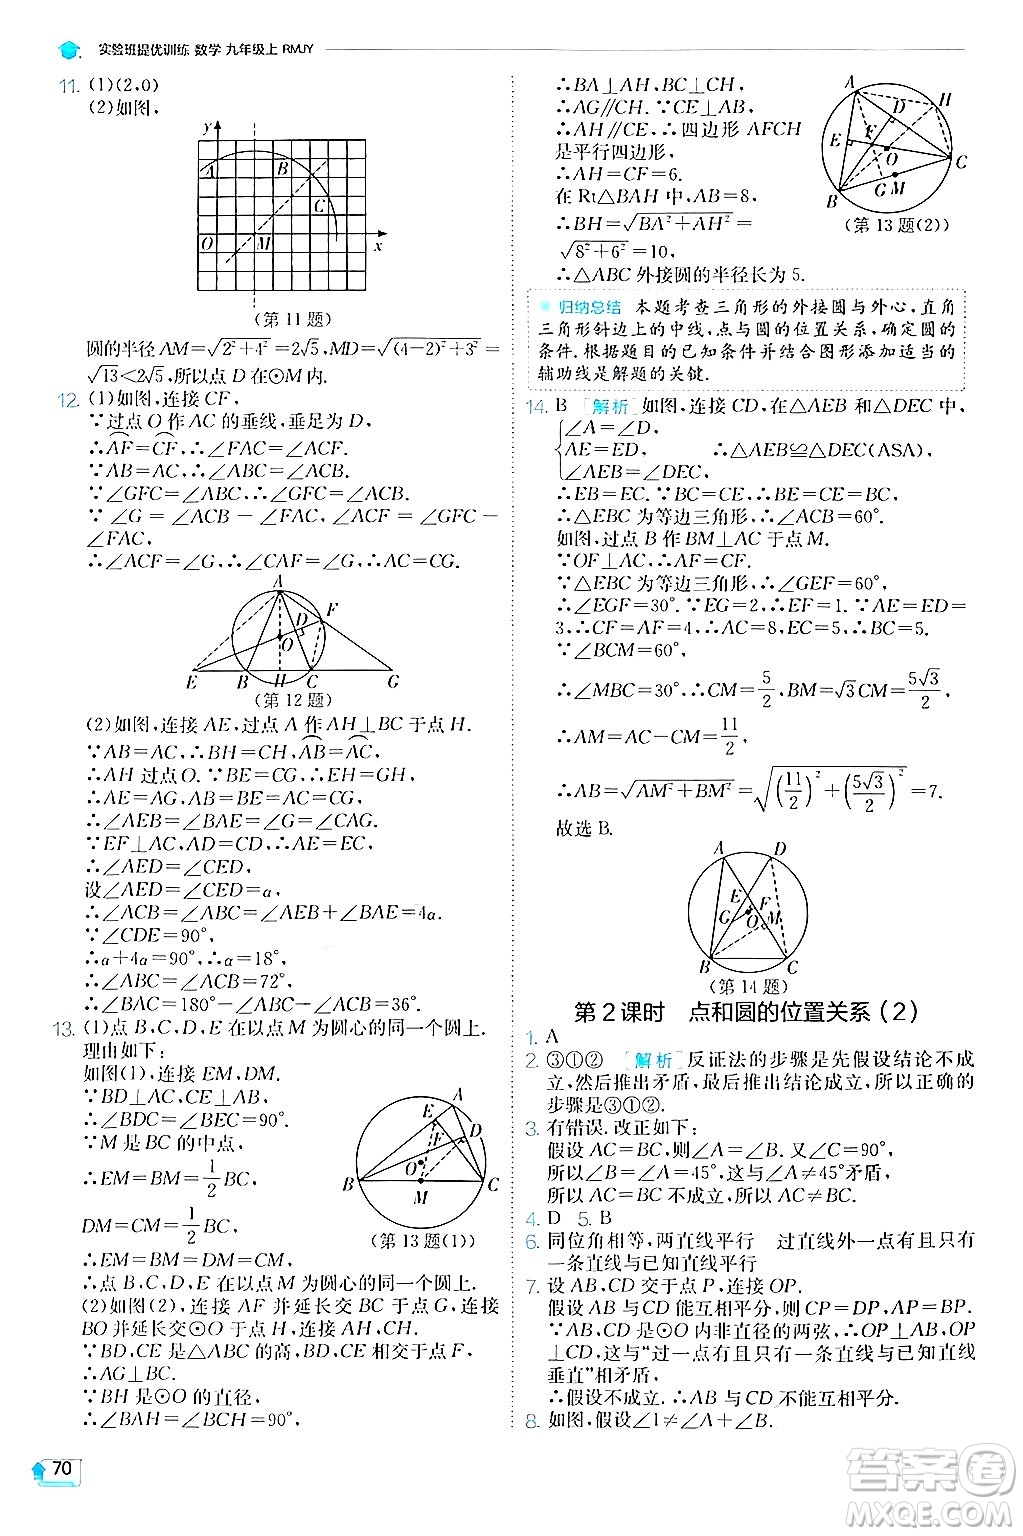 实验班提优训练 数学 九年级上 RMJY
11. (1)(2,0)
(2)如图,
y
A
B
C
O
M
x
(第11题)
圆的半径 AM=√(2²+4²)=2√5, MD=√((4-2)²+3²)=
√13<2√5,所以点 D 在⊙M 内.
12. (1)如图,连接 CF,
∵过点 O 作 AC 的垂线,垂足为 D,
∴AF=CF,∴∠FAC=∠FCA.
∵AB=AC,∴∠ABC=∠ACB.
∵∠GFC=∠ABC,∴∠GFC=∠ACB.
∵∠G=∠ACB-∠FAC,∠ACF=∠GFC-
∠FAC,
∴∠ACF=∠G,∴∠CAF=∠G.
A
F
D
O
E B H C G
(第12题)
(2)如图,连接 AE,过点 A 作 AH⊥BC 于点 H.
∵AB=AC,∴BH=CH,AB=AC,
∴AH 过点O.∵BE=CG,∴EH=GH,
∴AE=AG,∴∠AEB=∠G,
∴∠AEB=∠BAE=∠G=∠CAG.
∵EF⊥AC,AD=CD,∴AE=EC,
∴∠AED=∠CED.
设∠AED=∠CED=α,
∴∠ACB=∠ABC=∠AEB+∠BAE=4α.
∵∠CDE=90°,
∴α+4α=90°,∴α=18°,
∴∠ABC=∠ACB=72°,
∴∠BAC=180°-∠ABC-∠ACB=36°.
13. (1)点 B,C,D,E 在以点 M 为圆心的同一个圆上.
理由如下:
如图(1),连接 EM,DM.
∵BD⊥AC,CE⊥AB,
∴∠BDC=∠BEC=90°.
∵M 是 BC 的中点,
∴EM=BM=1/2 BC,
DM=CM=1/2 BC,
∴EM=BM=DM=CM,
A
E
F
D
O
B
M
C
(第13题(1))
∴点 B,C,D,E 在以点 M 为圆心的同一个圆上.
(2)如图(2),连接 AF 并延长交 BC 于点 G,连接
BO 并延长交⊙O 于点 H,连接 AH,CH.
∵BD,CE 是△ABC 的高,BD,CE 相交于点 F,
∴AG⊥BC.
∵BH 是⊙O 的直径,
∴∠BAH=∠BCH=90°,
∴BA⊥AH,BC⊥CH,
∴AG∥CH.∵CE⊥AB,
∴AH∥CE,∴四边形 AFCH
是平行四边形,
∴AH=CF=6.
在 Rt△BAH 中,AB=8,
∴BH=√(BA²+AH²)=
√(8²+6²)=10,
∴△ABC 外接圆的半径长为 5.
A
D
H
E
F
O
C
B
G M
(第13题(2))
归纳总结 本题考查三角形的外接圆与外心,直角
三角形斜边上的中线,点与圆的位置关系,确定圆的
条件.根据题目的已知条件并结合图形添加适当的
辅助线是解题的关键.
14. B [解析]如图,连接 CD,在△AEB 和△DEC 中,
{∠A=∠D,
AE=ED, ∴△AEB≌△DEC(ASA),
∠AEB=∠DEC,
∴EB=EC.∵BC=CE,∴BE=CE=BC,
∴△EBC 为等边三角形,∴∠ACB=60°.
如图,过点 B 作 BM⊥AC 于点 M.
∵OF⊥AC,∴AF=CF.
∵△EBC 为等边三角形,∴∠GEF=60°,
∴∠EGF=30°.∵EG=2,∴EF=1.∵AE=ED=
3,∴CF=AF=4,∴AC=8,EC=5,∴BC=5.
∵∠BCM=60°,
∴∠MBC=30°,∴CM=5/2,BM=√3CM=5√3/2,
∴AM=AC-CM=11/2,
∴AB=√(AM²+BM²)=√((11/2)²+(5√3/2)²)=7.
故选 B.
A D
E
F
G
O
M
B
C
(第14题)
第2课时 点和圆的位置关系(2)
1. A
2. ③①② [解析]反证法的步骤是先假设结论不成
立,然后推出矛盾,最后推出结论成立,所以正确的
步骤是③①②.
3. 有错误.改正如下:
假设 AC=BC,则∠A=∠B.又∠C=90°,
所以∠B=∠A=45°,这与∠A≠45°矛盾,
所以 AC=BC 不成立,所以 AC≠BC.
4. D 5. B
6. 同位角相等,两直线平行 过直线外一点,有且只有
一条直线与已知直线平行
7. 设 AB,CD 交于点 P,连接 OP.
假设 AB 与 CD 能互相平分,则 CP=DP,AP=BP.
∵AB,CD 是⊙O 内非直径的两弦,∴OP⊥AB,
OP⊥CD,这与“过一点有且只有一条直线与已知直线
垂直”矛盾,
∴假设不成立.∴AB 与 CD 不能互相平分.
8. 如图,假设∠1≠∠A+∠B.
70
答案圈
MXQE.COM